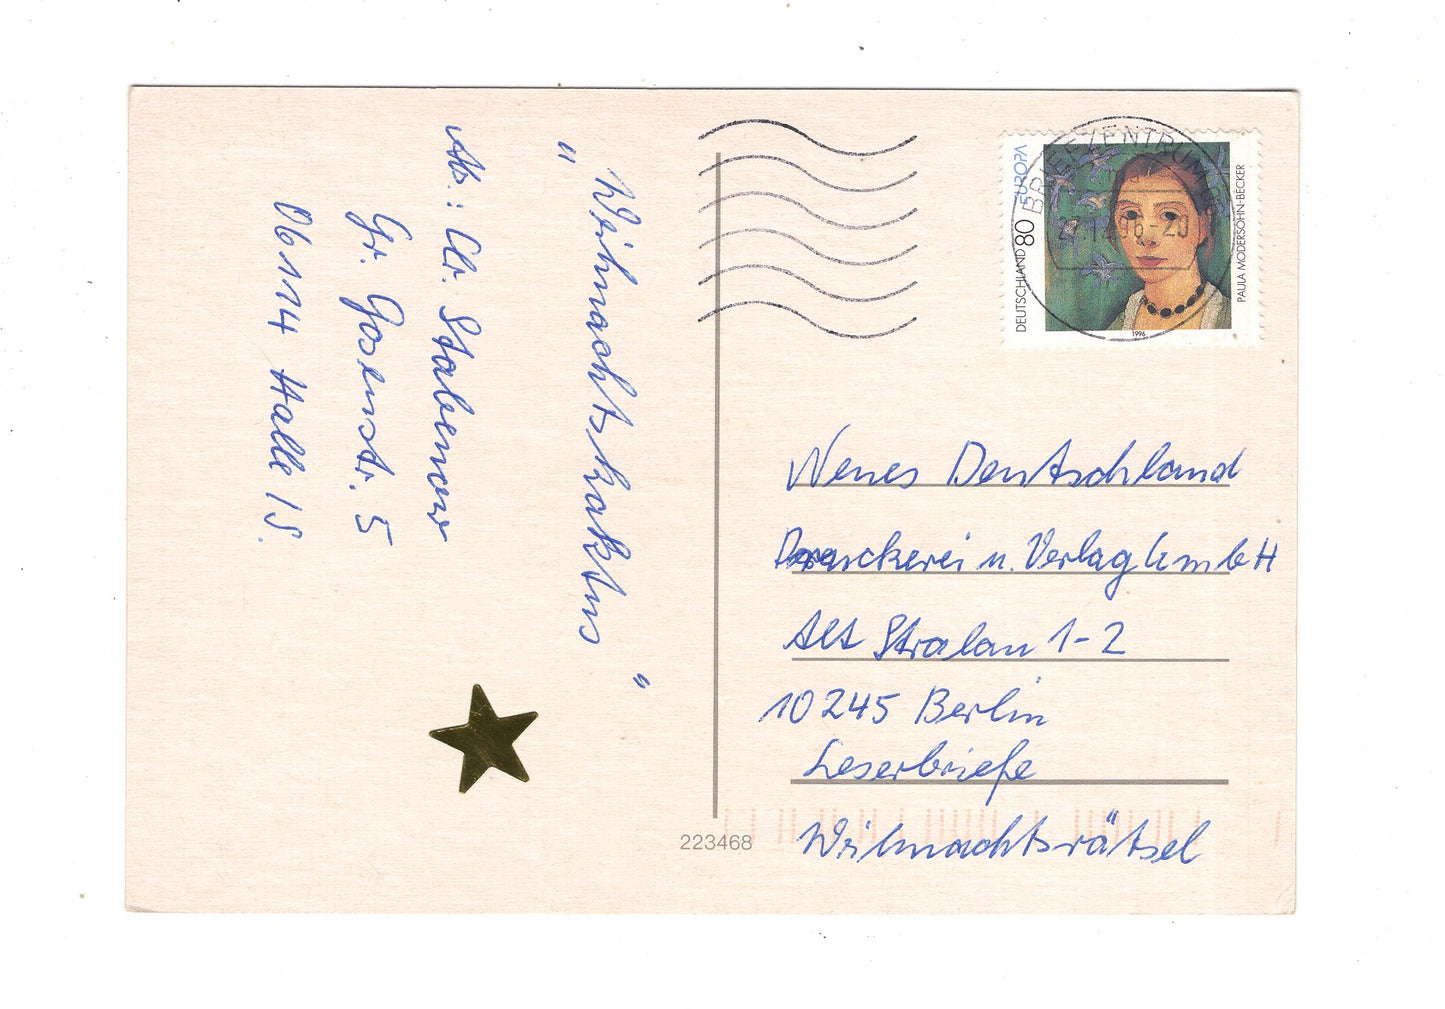 „Weihnachtskaktus“
Ab.: Chr. Stabenow
Gr. Gosenstr. 5
06114 Halle/S.
EUROPA
DEUTSCHLAND 80
PAULA MODERSOHN-BECKER
1996
BRIEFZENTRUM
Neues Deutschland
Druckerei u. Verlag GmbH
Alt Stralau 1-2
10245 Berlin
Leserbriefe
Weihnachtsrätsel
223468